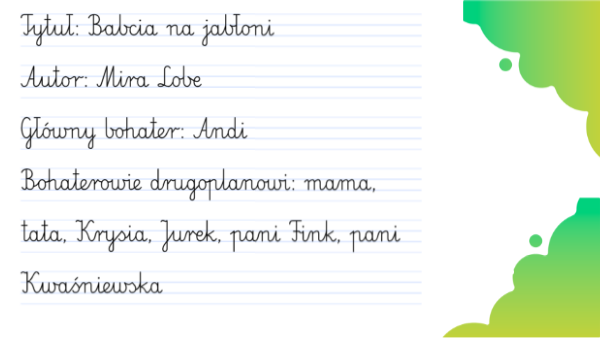 Tytuł: Babcia na jabłoni
Autor: Mira Lobe
Główny bohater: Andi
Bohaterowie drugoplanowi: mama,
tata, Krysia, Jurek, pani Fink, pani
Kwaśniewska